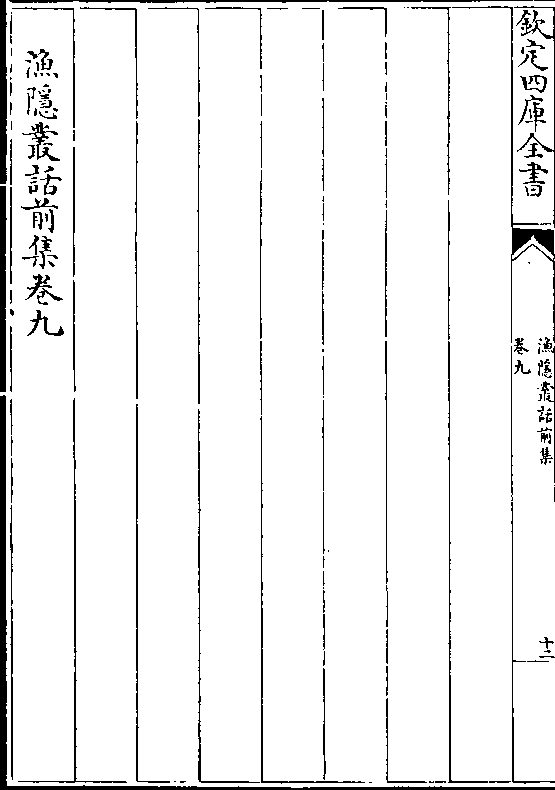 欽定四庫全書
漁隱叢話前集
卷九
十二
漁隱叢話前集卷九